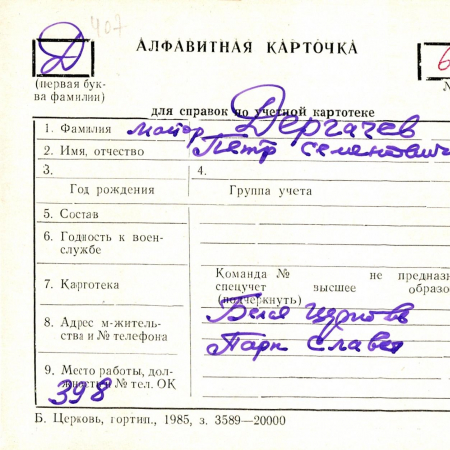 Д 407
АЛФАВИТНАЯ КАРТОЧКА
6
(первая бук-
ва фамилии)
№
для справок по учетной картотеке
1. Фамилия майор Дергачев
2. Имя, отчество Петр Сементович
3.
4.
Год рождения
Группа учета
5. Состав
6. Годность к воен-
службе
7. Картотека
Команда № не предназн
спецучет высшее образо
(подчеркнуть)
8. Адрес м-житель-
ства и № телефона
Белая Церковь
Парк Славы
9. Место работы, дол-
жность и № тел. ОК
398
Б. Церковь, гортип., 1985, з. 3589—20000